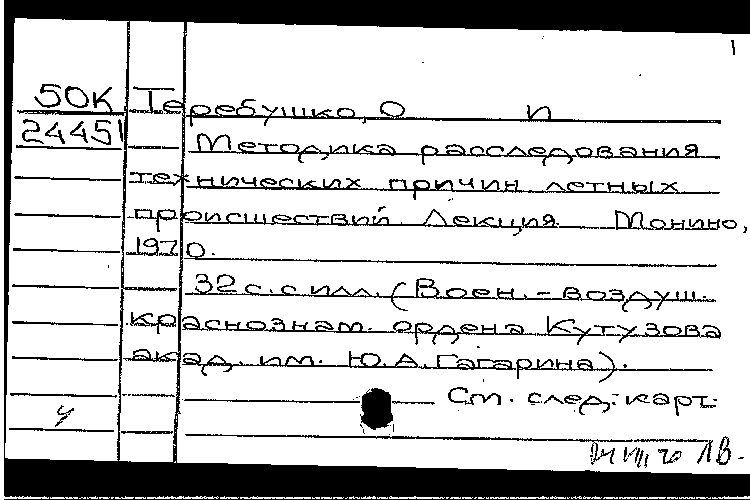 1
50К Теребушко, О И
24451 Методика расследования
технических причин летных
происшествий. Лекция. Монино,
1970.
32 с. с илл. (Воен.-воздуш.
краснознам. ордена Кутузова
акад. им. Ю.А.Гагарина).
См. след. карт.
70 ЛВ.